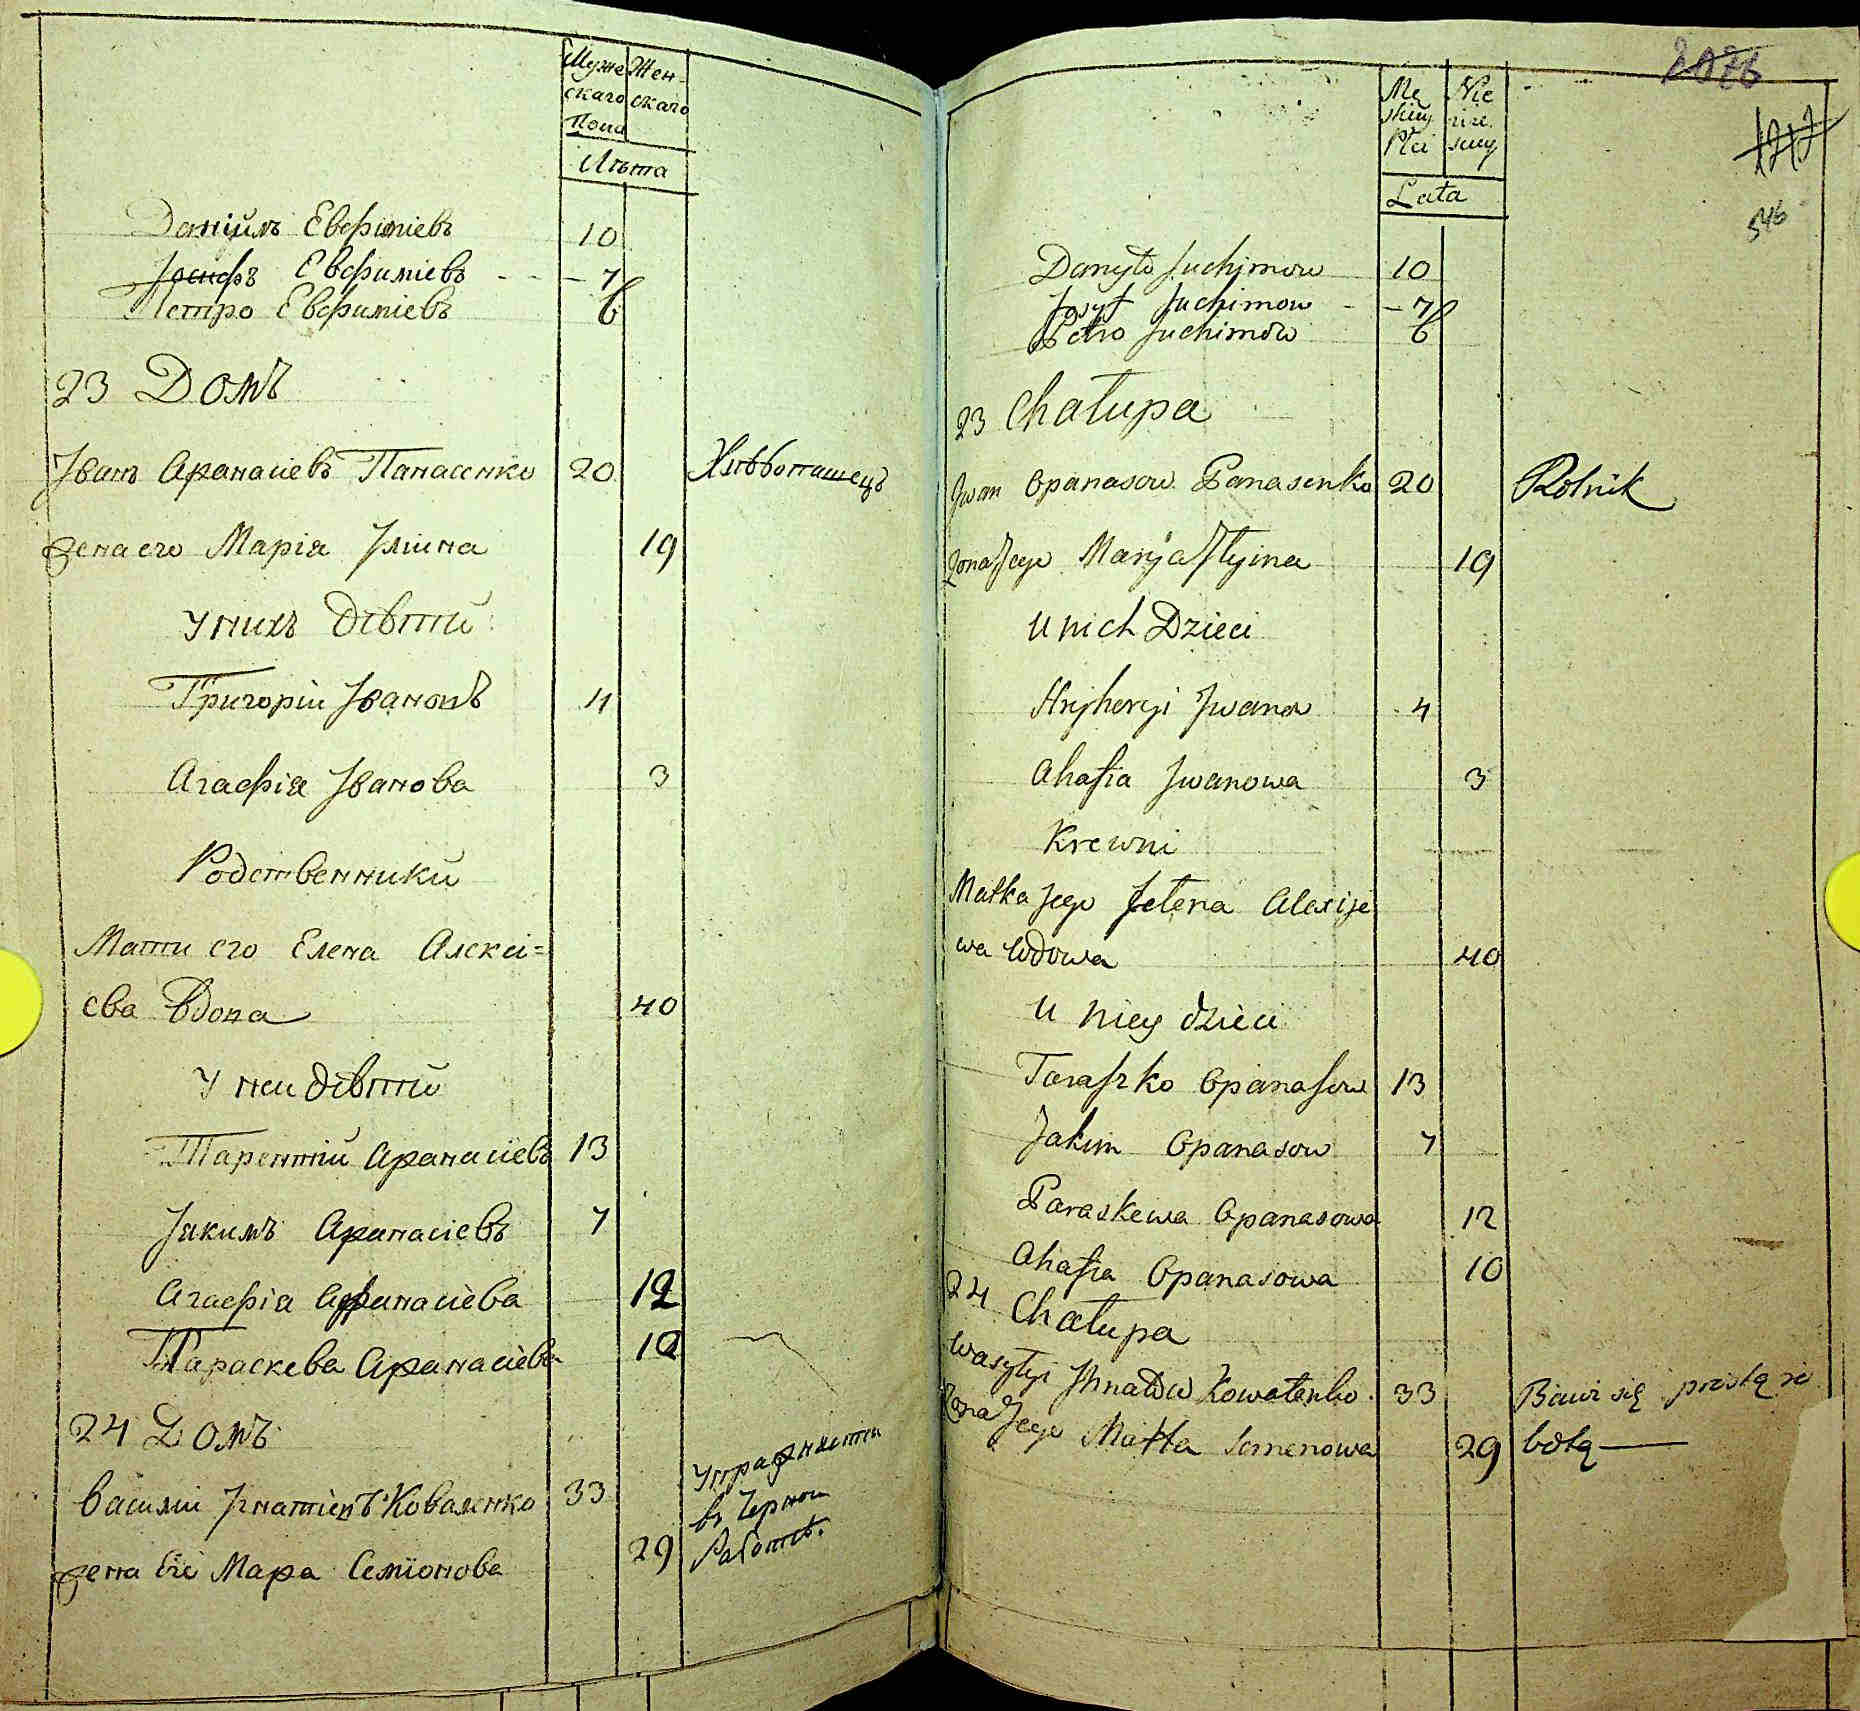 Муже Жен-
скаго скаго
Пола
Лѣта
Даніилъ Евфиміевъ 10
Іосифъ Евфиміевъ - - - 7
Петро Евфиміевъ 6
23 Домъ
Іванъ Афанасіевъ Панасенко 20 Хлѣбопашецъ
жена его Марія Іліина 19
У нихъ дѣти
Григорій Івановъ 4
Агафія Іванова 3
Родственники
Мати его Елена Алексі=
ева Вдова 40
У неи дѣти
Тарентій Афанасіевъ 13
Іакимъ Афанасіевъ 7
Агафія Афанасіева 12
Параскева Афанасіева 10
24 Домъ
Василій Ігнатіевъ Коваленко 33 Упражняети
въ Чернои
жена Еге Марѳа Семіонова 29 Работѣ.
2076
Mę Nie
skiey wie.
Płci skiey
1217
Lata
546
Danyło Juchimow 10
Josyf Juchimow - - 7
Petro Juchimow 6
23 Chałupa
Jwan Opanasow Panasenko 20 Rolnik
Żona Jego Marja Jlyina 19
U nich Dzieci
Hryhoryi Jwanow 4
Ahafia Jwanowa 3
Krewni
Matka Jego Jelena Alexije
wa Wdowa 40
U niey dzieci
Taraszko Opanasow 13
Jakim Opanasow 7
Paraskewa Opanasowa 12
Ahafia Opanasowa 10
24 Chałupa
Wasylyi Jhnatow Kowalenko 33 Bawi się prostą ro
Żona Jego Marta Semenowa 29 botą